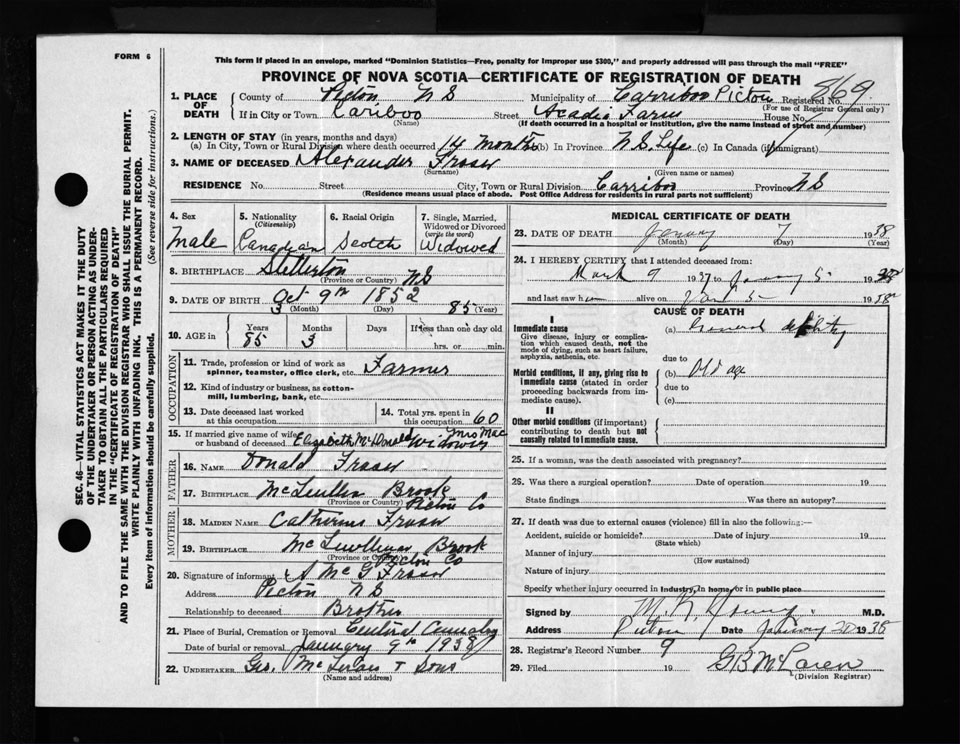 FORM 6
This form if placed in an envelope, marked "Dominion Statistics—Free, penalty for improper use $300," and properly addressed will pass through the mail "FREE"
PROVINCE OF NOVA SCOTIA—CERTIFICATE OF REGISTRATION OF DEATH
1. PLACE OF DEATH
County of Pictou N S Municipality of Carriboo Pictou Registered No. 869
(For use of Registrar General only)
If in City or Town Cariboo Street Acadia Farm House No.
(Name) (If death occurred in a hospital or institution, give the name instead of street and number)
2. LENGTH OF STAY (in years, months and days)
(a) In City, Town or Rural Division where death occurred 14 months (b) In Province N.S. Life (c) In Canada (if immigrant)
3. NAME OF DECEASED Alexander Fraser
(Surname) (Given name or names)
RESIDENCE No. Street City, Town or Rural Division Carriboo Province NS
(Residence means usual place of abode. Post Office Address for residents in rural parts not sufficient)
4. Sex
Male
5. Nationality (Citizenship)
Canadian
6. Racial Origin
Scotch
7. Single, Married, Widowed or Divorced (write the word)
Widowed
8. BIRTHPLACE Stellerton NS
(Province or Country)
9. DATE OF BIRTH Oct 9th 1852 85
(Month) (Day) (Year)
10. AGE in Years Months Days If less than one day old
85 3 hrs. or min.
OCCUPATION
11. Trade, profession or kind of work as spinner, teamster, office clerk, etc. Farmer
12. Kind of industry or business, as cotton-mill, lumbering, bank, etc.
13. Date deceased last worked at this occupation
14. Total yrs. spent in this occupation 60
15. If married give name of wife or husband of deceased Elizabeth McDonald
FATHER
16. NAME Donald Fraser
17. BIRTHPLACE Brook Pictou Co
(Province or Country)
MOTHER
18. MAIDEN NAME Catherine Fraser
19. BIRTHPLACE Brook Pictou Co
(Province or Country)
20. Signature of informant A McG Fraser
Address Pictou N S
Relationship to deceased Brother
21. Place of Burial, Cremation or Removal Central
Date of burial or removal January 9th 1938
22. UNDERTAKER Geo. & Sons
(Name and address)
MEDICAL CERTIFICATE OF DEATH
23. DATE OF DEATH 7 1938
(Month) (Day) (Year)
24. I HEREBY CERTIFY that I attended deceased from:
9 1937 to January 5 1938
and last saw him alive on Jan 5 1938
CAUSE OF DEATH
I
Immediate cause
Give disease, injury or complication which caused death, not the mode of dying, such as heart failure, asphyxia, asthenia, etc.
(a) General debility
due to
Morbid conditions, if any, giving rise to immediate cause (stated in order proceeding backwards from immediate cause).
(b) Old age
due to
(c)
II
Other morbid conditions (if important) contributing to death but not causally related to immediate cause.
25. If a woman, was the death associated with pregnancy?
26. Was there a surgical operation? Date of operation 19
State findings Was there an autopsy?
27. If death was due to external causes (violence) fill in also the following:—
Accident, suicide or homicide? Date of injury 19
(State which)
Manner of injury
(How sustained)
Nature of injury
Specify whether injury occurred in Industry, in home, or in public place
Signed by M. R. Young M.D.
Address Pictou Date January 20 1938
28. Registrar's Record Number 9
29. Filed 19 G B McLaren
(Division Registrar)
SEC. 46—VITAL STATISTICS ACT MAKES IT THE DUTY
OF THE UNDERTAKER OR PERSON ACTING AS UNDER-
TAKER TO OBTAIN ALL THE PARTICULARS REQUIRED
IN THE "CERTIFICATE OF REGISTRATION OF DEATH"
AND TO FILE THE SAME WITH THE DIVISION REGISTRAR WHO SHALL ISSUE THE BURIAL PERMIT.
WRITE PLAINLY WITH UNFADING INK. THIS IS A PERMANENT RECORD.
Every item of information should be carefully supplied. (See reverse side for instructions.)